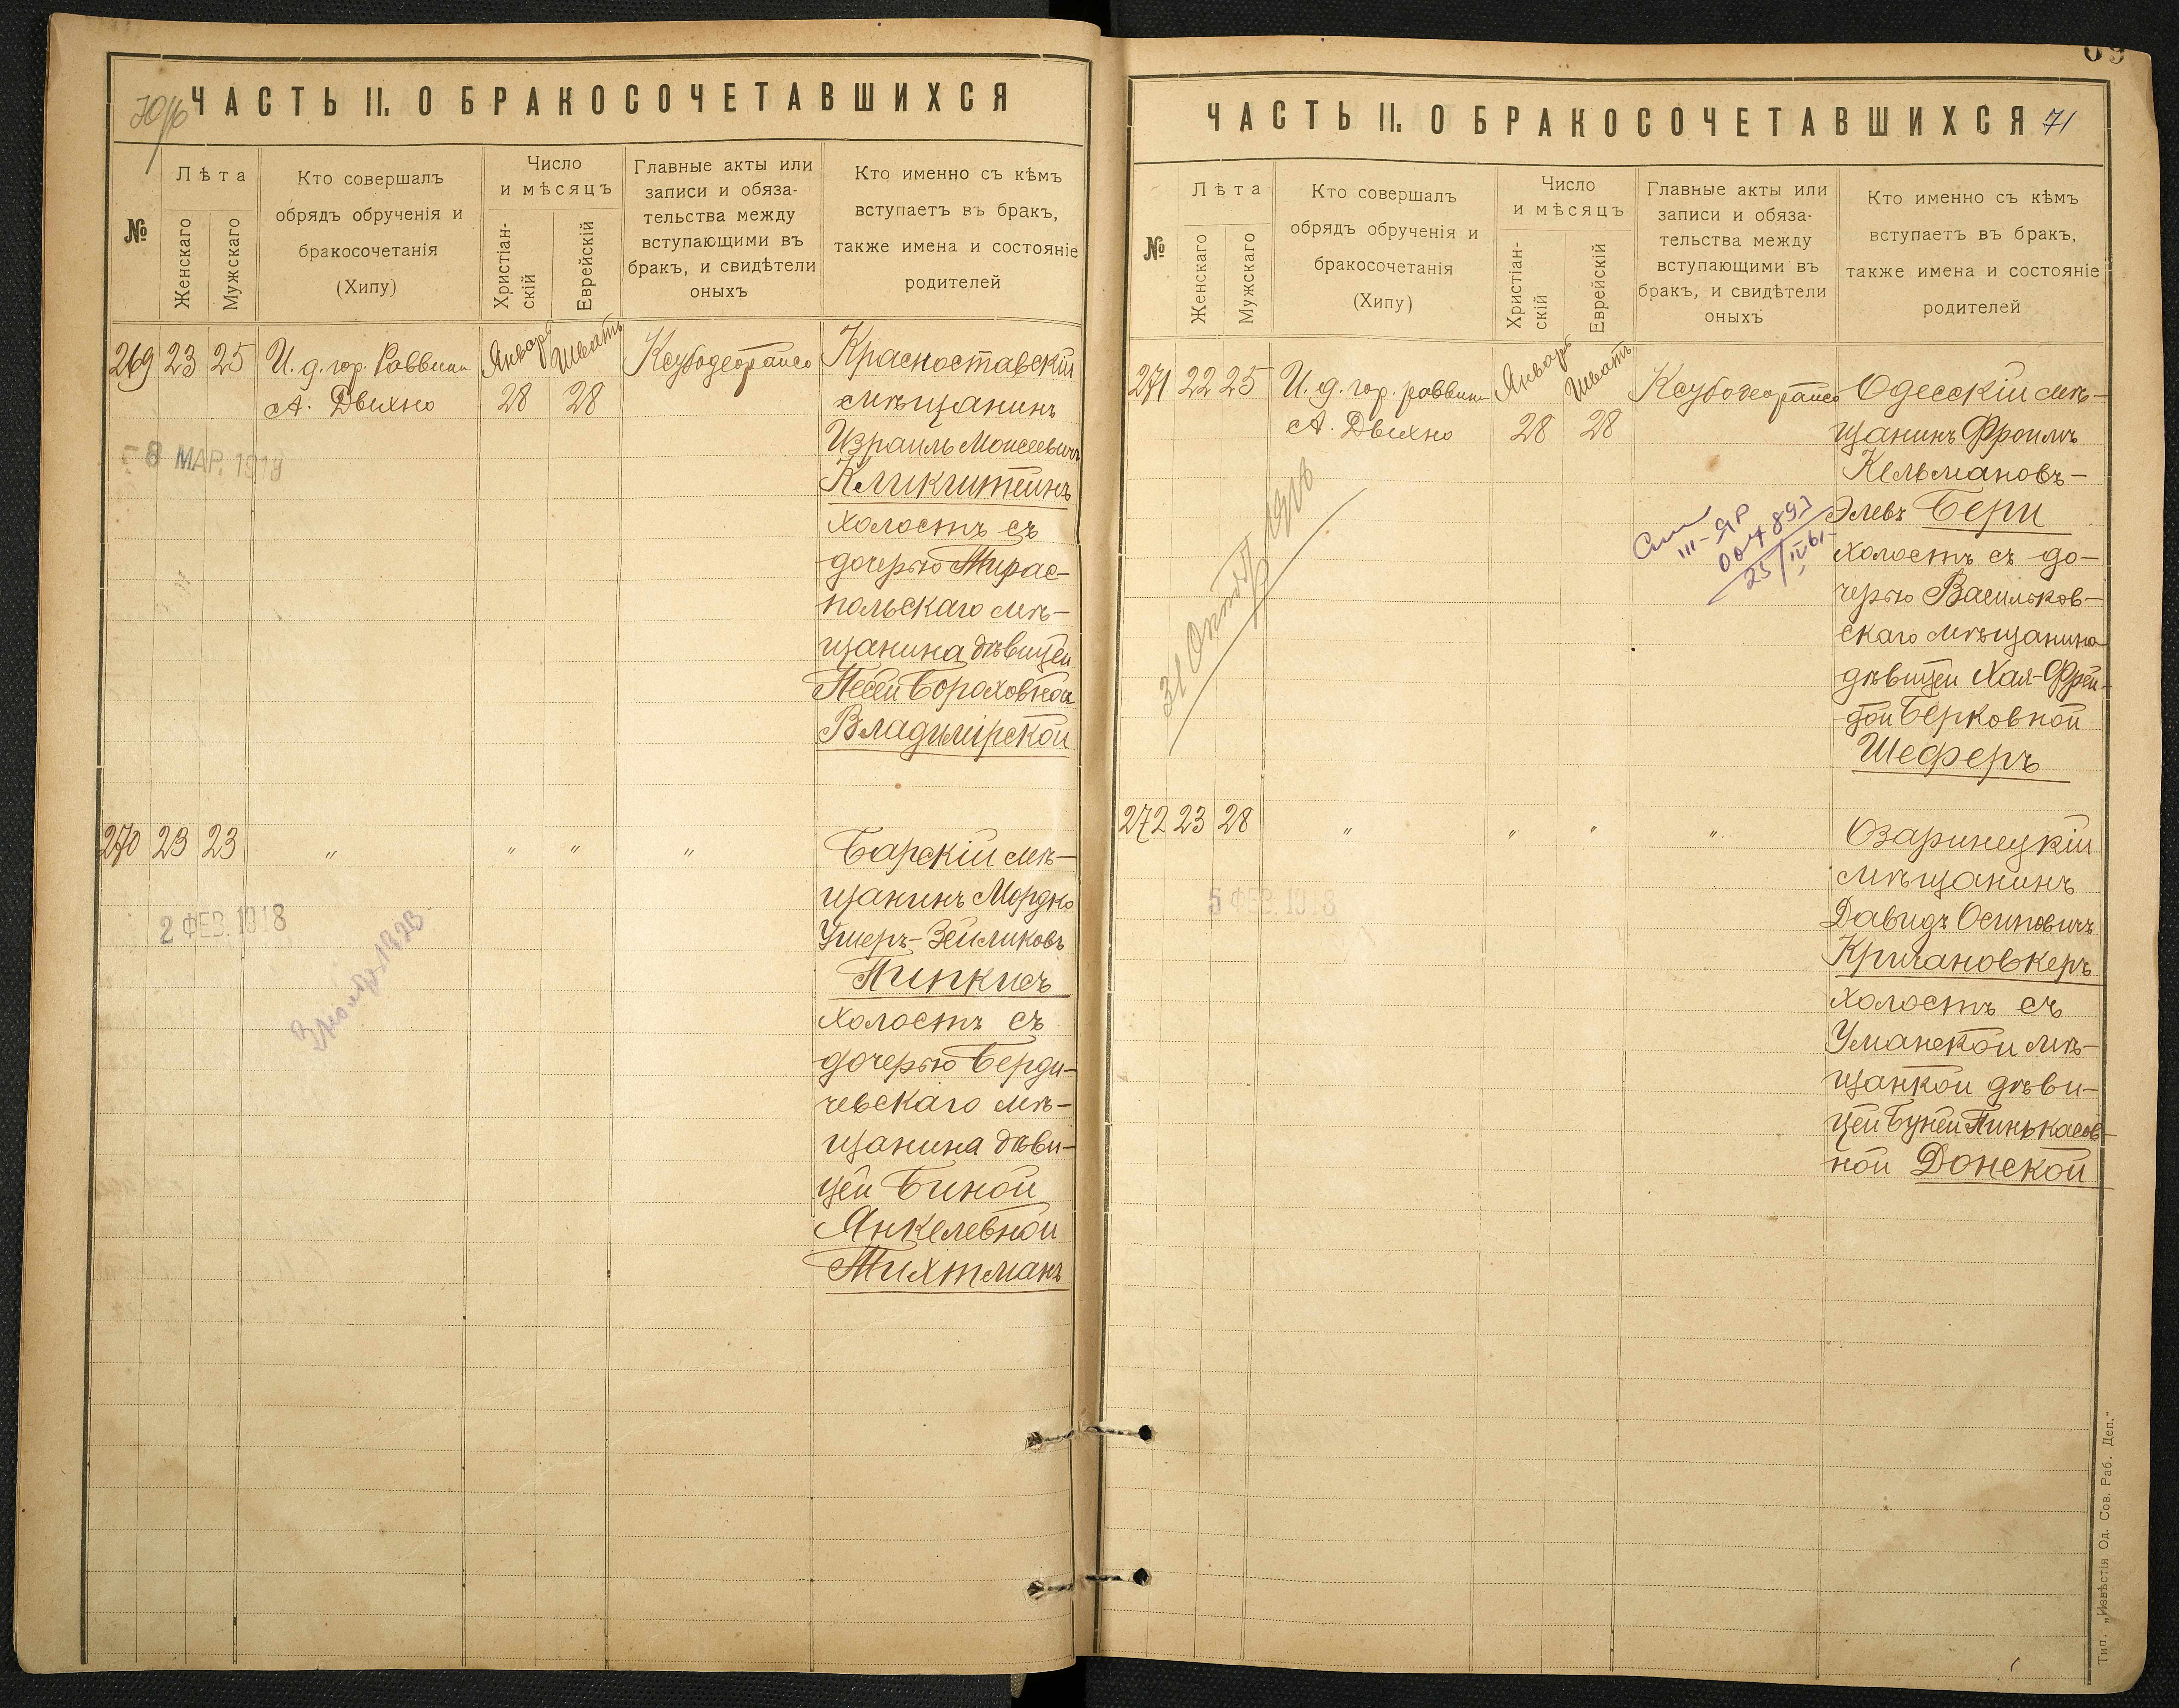 ЧАСТЬ II. О БРАКОСОЧЕТАВШИХСЯ
№
Лѣта
Женскаго
Мужскаго
Кто совершалъ
обрядъ обрученія и
бракосочетанія
(Хипу)
Число
и мѣсяцъ
Христіан-
скій
Еврейскій
Главные акты или
записи и обяза-
тельства между
вступающими въ
бракъ, и свидѣтели
оныхъ
Кто именно съ кѣмъ
вступаетъ въ бракъ,
также имена и состояніе
родителей
269 23 25
И. д. гор. Раввина
А. Двихно
Январь
28
Шватъ
28
Красноставскій
мѣщанинъ
Израиль Моисеевичъ
Кликштейнъ
холостъ съ
дочерью Тирас-
польскаго мѣ-
щанина дѣвицей
Песей Бороховной
Владимірской
8 МАР. 1918
270 23 23
" " " "
Барскій мѣ-
щанинъ Мордко
Ушеръ-Зейликовъ
Пинкисъ
холостъ съ
дочерью Берди-
чевскаго мѣ-
щанина дѣви-
цей Биной
Янкелевной
Тихтманъ
2 ФЕВ. 1918
ЧАСТЬ II. О БРАКОСОЧЕТАВШИХСЯ 71
№
Лѣта
Женскаго
Мужскаго
Кто совершалъ
обрядъ обрученія и
бракосочетанія
(Хипу)
Число
и мѣсяцъ
Христіан-
скій
Еврейскій
Главные акты или
записи и обяза-
тельства между
вступающими въ
бракъ, и свидѣтели
оныхъ
Кто именно съ кѣмъ
вступаетъ въ бракъ,
также имена и состояніе
родителей
271 22 25
И. д. гор. раввина
А. Двихно
Январь
28
Шватъ
28
Одесскій мѣ-
щанинъ Фроимъ
Кельмановъ-
Элевъ Бери
холостъ съ до-
черью Васильков-
скаго мѣщанина
дѣвицей Хая-Фрей-
дой Берковной
Шеферъ
31 Октяб 1918
III-ЯР
272 23 28
" " " "
Озаринецкій
мѣщанинъ
Давидъ Осиповичъ
Кричановкеръ
холостъ съ
Уманской мѣ-
щанкой дѣви-
цей Буней Пинькасов-
ной Донской
5 ФЕВ. 1918
Тип. „Извѣстія Од. Сов. Раб. Деп."